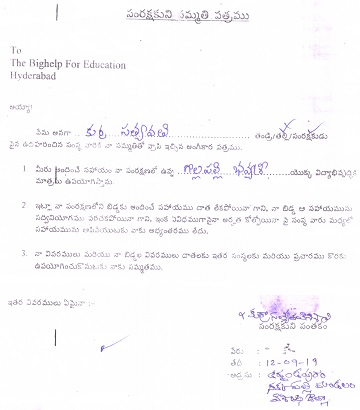 సంరక్షకుని సమ్మతి పత్రము
To
The Bighelp For Education
Hyderabad
అయ్యా!
నేను అనగా కుర్ర సత్యవతి తండ్రి/తల్లి/సంరక్షకుడు
పైన ఉదహరించిన సంస్థ వారికి నా సమ్మతితో వ్రాసి ఇచ్చిన అంగీకార పత్రము.
1 మీరు అందించే సహాయం నా సంరక్షణలో ఉన్న గొల్లపల్లి యొక్క విద్యాభివృద్ధికి
మాత్రమే ఉపయోగిస్తాను.
2 ఇట్లా నా సంరక్షణలోని బిడ్డకు అందించే సహాయము దాత లేకపోయినా గాని, నా బిడ్డ ఆ సహాయమును
సద్వినియోగము పరచకపోయినా గాని, ఇంకే విధముగానైనా అర్హత కోల్పోయినా పై సంస్థ వారు మధ్యలో
సహాయమును ఆపివేయుటకు నాకు అభ్యంతరము లేదు.
3. నా వివరములు మరియు నా బిడ్డల వివరములు దాతలకు ఇతర సంస్థలకు మరియు ప్రచారము కొరకు
ఉపయోగించుకొనుటకు నాకు సమ్మతము.
ఇతర వివరములు ఏమైనా
సంరక్షకుని సంతకం
పేరు :
తేది : 12-09-13
అడ్రసు :